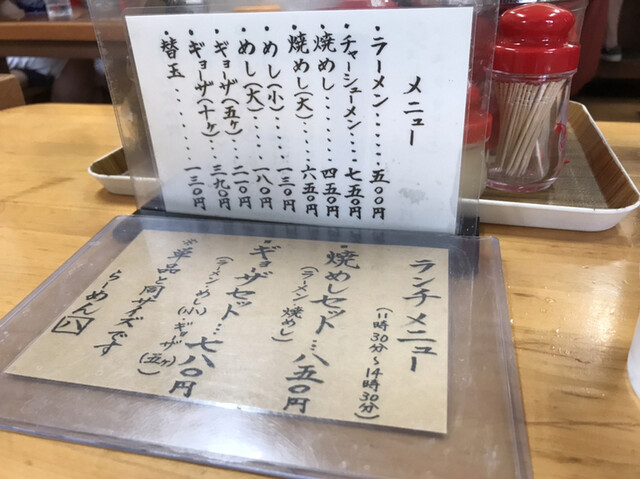 メニュー
・ラーメン......五〇〇円
・チャーシューメン....七五〇円
・焼めし......四五〇円
・焼めし(大)....六五〇円
・めし(小)....一三〇円
・めし(大)....一八〇円
・ギョーザ(五ケ)..二一〇円
・ギョーザ(十ケ)..三九〇円
・替玉.......一三〇円
ランチメニュー
(11時30分~14時30分)
・焼めしセット...八五〇円
(ラーメン 焼めし)
・ギョーザセット...七八〇円
(ラーメン、めし(小)ギョーザ(五ケ))
※単品と同サイズです
らーめん八